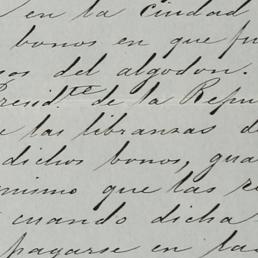 en la ciudad
bonos en que fu
os del algodon.
resid.te de la Repu
e las libranzas d
dichos bonos, gua
mismo que las re
cuando dicha
pagarse en la